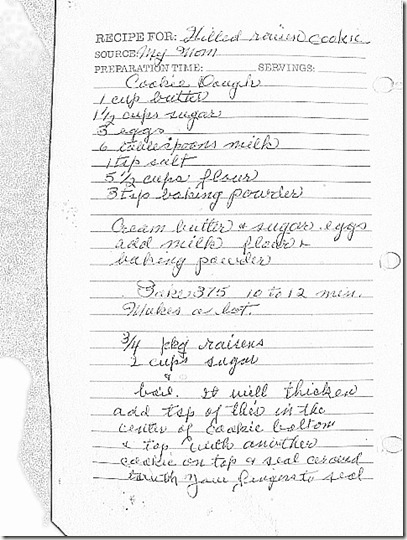 RECIPE FOR: Filled raisen cookie
SOURCE: My Mom
PREPARATION TIME: SERVINGS:
Cookie Dough
1 cup butter
1 1/2 cups sugar
3 eggs
6 tablespoons milk
1 tsp salt
5 1/2 cups flour
3 tsp baking powder
Cream butter & sugar. eggs
add milk flour &
baking powder
Bake 375 10 to 12 min.
Makes a lot.
3/4 pkg raisens
2 cups sugar
boil. it will thicken
add tsp of this in the
center of cookie bottom
& top with another
cookie on top & seal around
with your fingers to seal